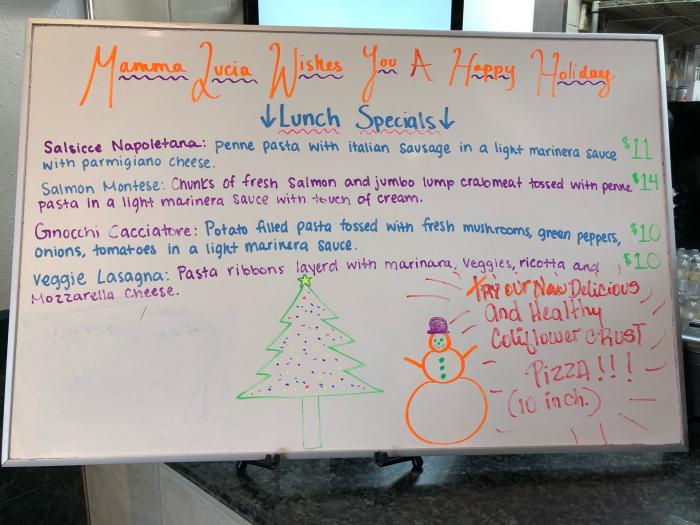 Mamma Lucia Wishes You A Happy Holiday
↓Lunch Specials↓
Salsicce Napoletana: penne pasta with italian sausage in a light marinera sauce $11
with parmigiano cheese.
Salmon Montese: Chunks of fresh Salmon and jumbo lump crabmeat tossed with penne $14
pasta in a light marinera sauce with touch of cream.
Gnocchi Cacciatore: Potato filled pasta tossed with fresh mushrooms, green peppers, $10
onions, tomatoes in a light marinera sauce.
Veggie Lasagna: Pasta ribbons layerd with marinara, veggies, ricotta and $10
Mozzarella cheese.
TRY OUR New Delicious
And Healthy
Coliflower cRUST
Pizza!!!
(10 inch.)